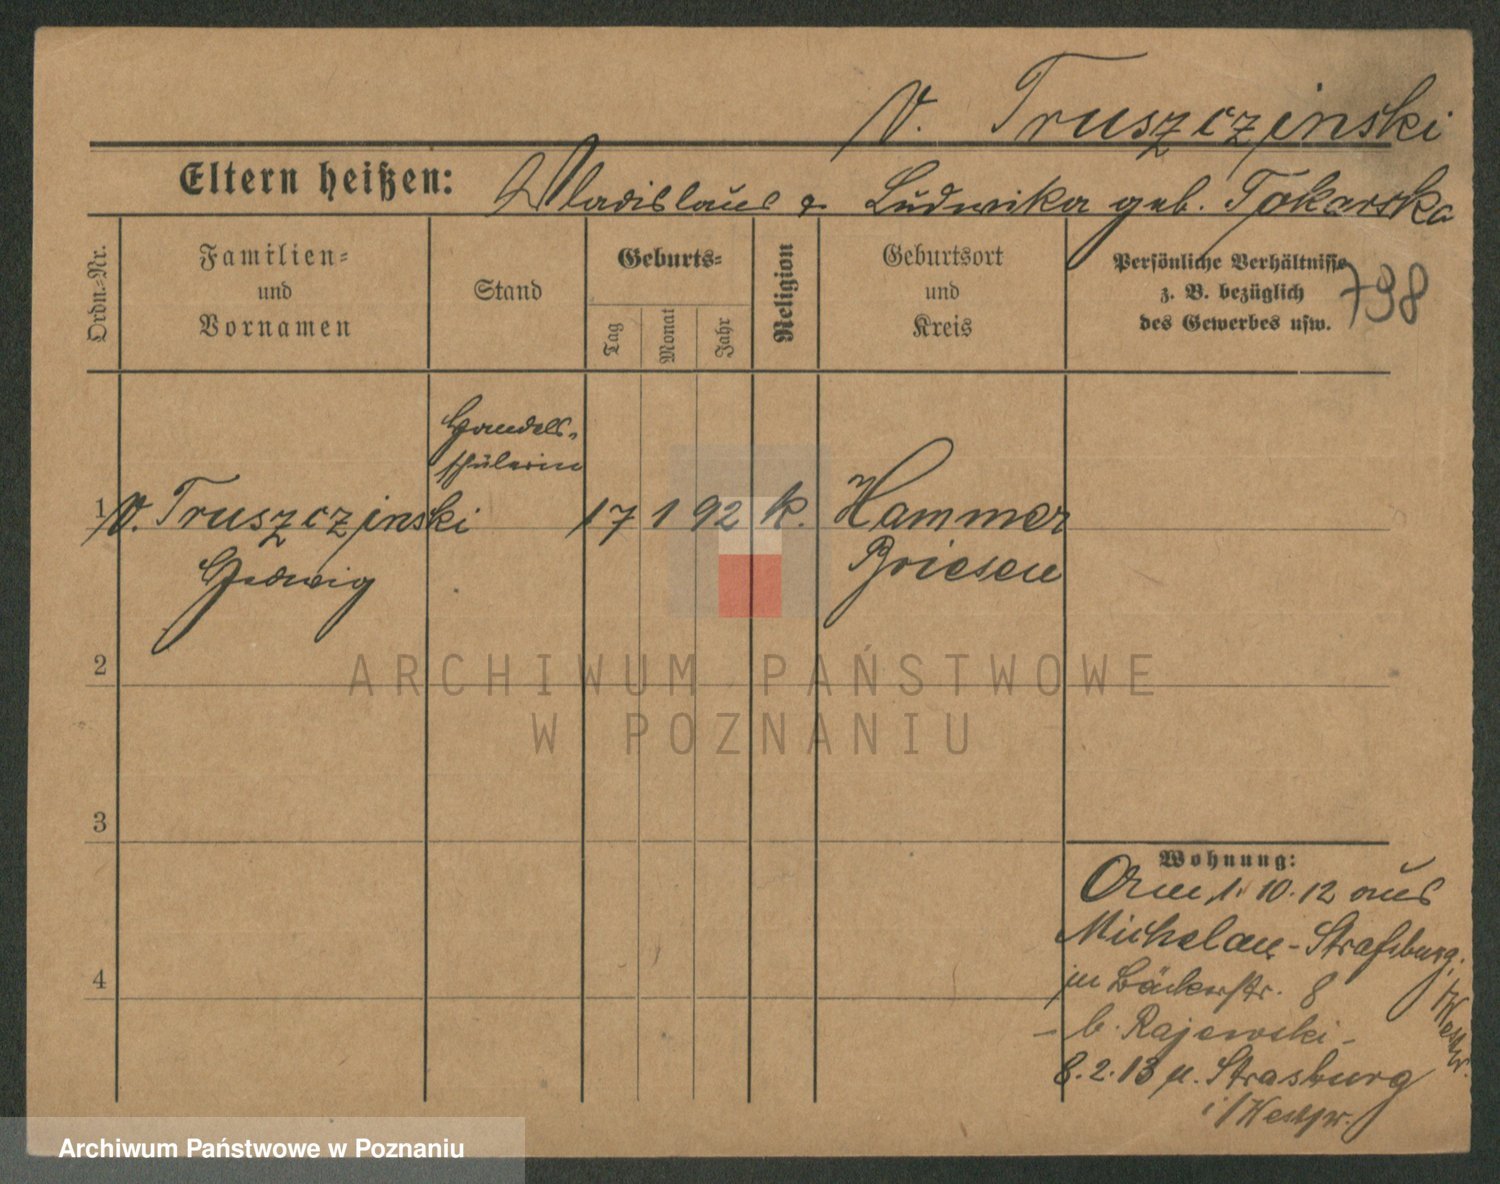 v. Truszczinski
Eltern heißen: Wladislaus & Ludwika geb. Tokarska
Ordn.-Nr.
Familien-
und
Vornamen
Stand
Geburts-
Tag
Monat
Jahr
Religion
Geburtsort
und
Kreis
Persönliche Verhältnisse
z. B. bezüglich
des Gewerbes usw.
798
Handels-
schülerin
1 v. Truszczinski 17 1 92 k. Hammer
Hedwig Briesen
2
3
4
Wohnung:
Am 1. 10. 12 aus
Michelau - Strasburg i/Westpr.
in Bäckerstr. 8
- b. Rajewski -
8. 2. 13 n. Strasburg
i/Westpr.
ARCHIWUM PAŃSTWOWE
W POZNANIU
Archiwum Państwowe w Poznaniu